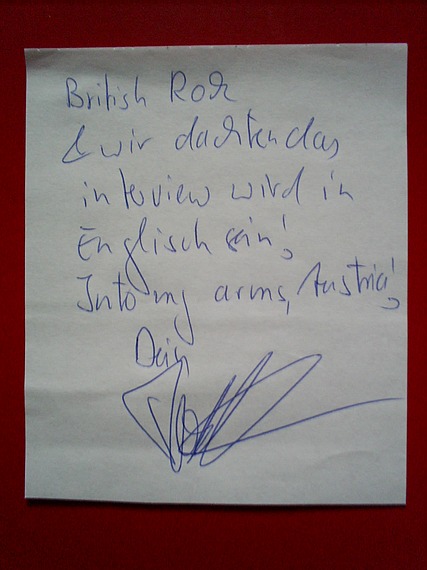 British Rock
& wir dachten das
interview wird in
Englisch sein!
Into my arms, Austria!
Dein